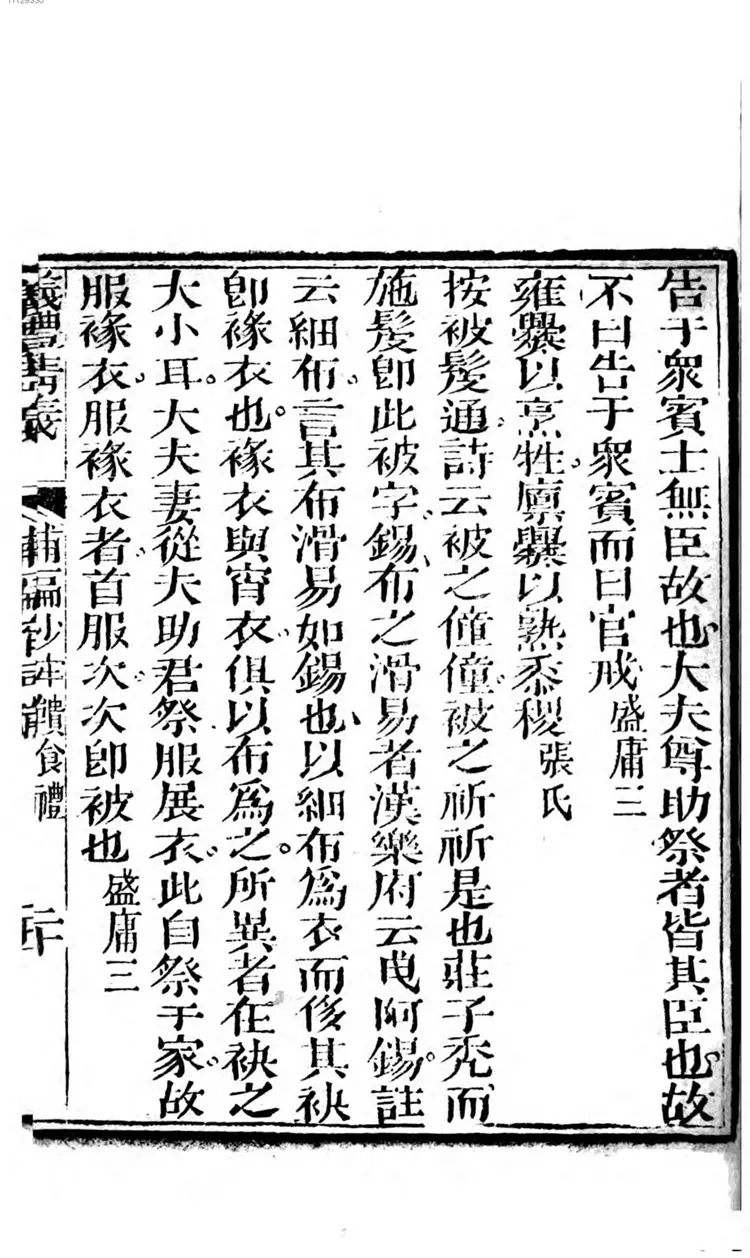 11129330
告于衆賓士無臣故也大夫尊助祭者皆其臣也故
不曰告于衆賓而曰官戒盛庸三
雍爨以烹牲廩爨以熟黍稷張氏
按被髲通詩云被之僮僮被之祈祈是也莊子禿而
施髲卽此被字錫布之滑易者漢樂府云曳阿錫註
云細布言其布滑易如錫也以細布爲衣而侈其袂
卽褖衣也褖衣與宵衣俱以布爲之所異者在袂之
大小耳大夫妻從夫助君祭服展衣此自祭于家故
服褖衣服褖衣者首服次次卽被也盛庸三
儀禮精義 補編鈔註饋食禮